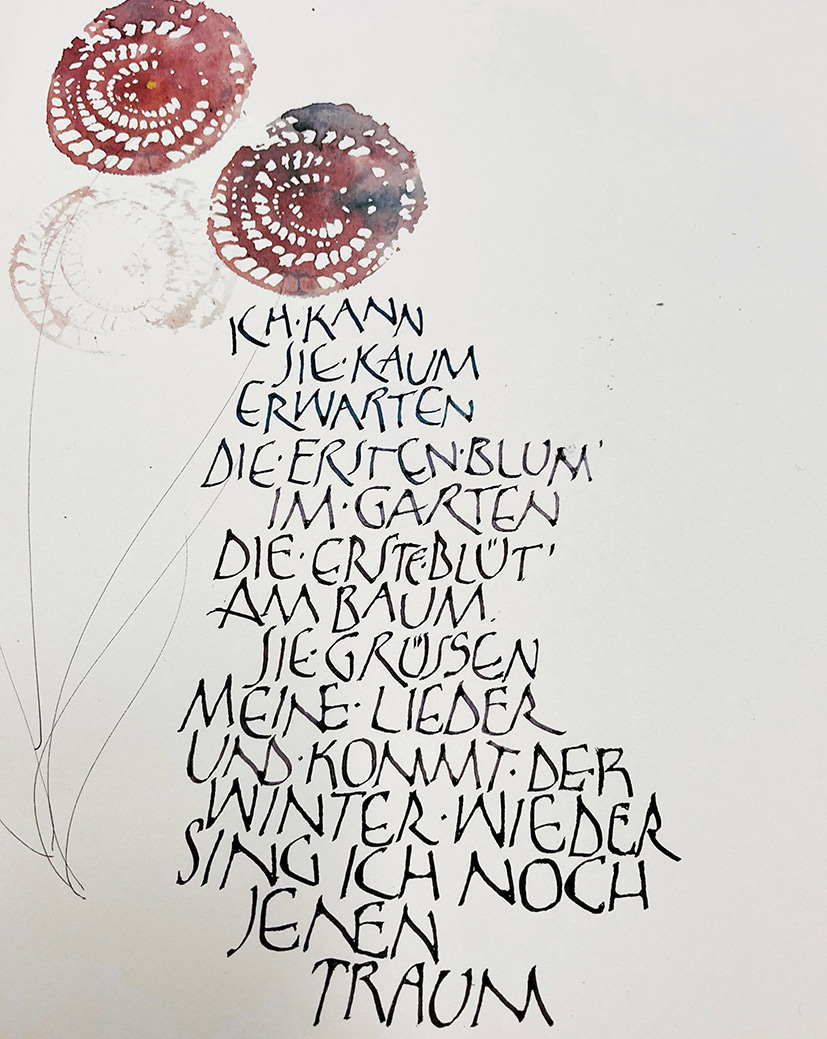 ICH·KANN
SIE·KAUM
ERWARTEN
DIE·ERSTEN·BLUM'
IM·GARTEN
DIE·ERSTE·BLÜT'
AM BAUM.
SIE·GRÜSSEN
MEINE·LIEDER
UND·KOMMT·DER
WINTER·WIEDER
SING ICH NOCH
JENEN
TRAUM